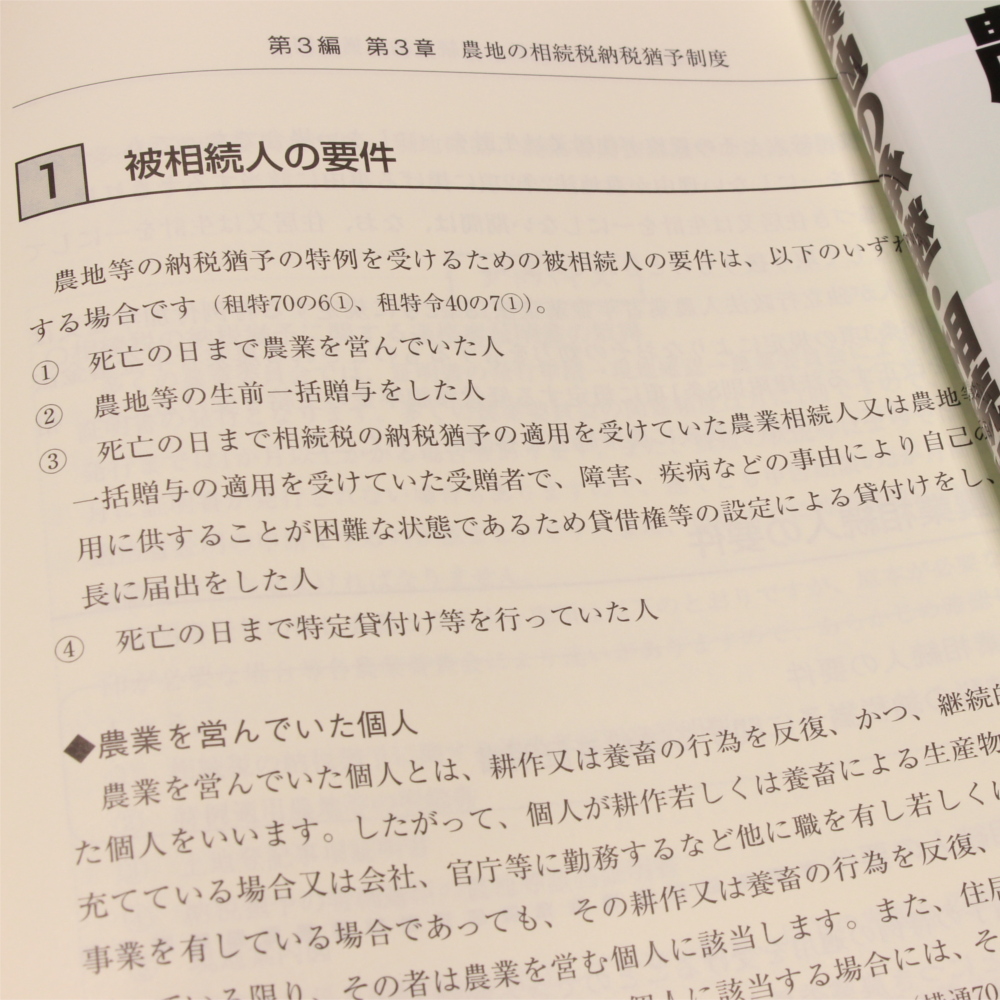 第3編 第3章 農地の相続税納税猶予制度
1 被相続人の要件
農地等の納税猶予の特例を受けるための被相続人の要件は、以下のいずれ
する場合です（租特70の6①、租特令40の7①）。
① 死亡の日まで農業を営んでいた人
② 農地等の生前一括贈与をした人
③ 死亡の日まで相続税の納税猶予の適用を受けていた農業相続人又は農地等
一括贈与の適用を受けていた受贈者で、障害、疾病などの事由により自己の
用に供することが困難な状態であるため貸借権等の設定による貸付けをし、
長に届出をした人
④ 死亡の日まで特定貸付け等を行っていた人
◆農業を営んでいた個人
農業を営んでいた個人とは、耕作又は養畜の行為を反復、かつ、継続的
た個人をいいます。したがって、個人が耕作若しくは養畜による生産物
充てている場合又は会社、官庁等に勤務するなど他に職を有し若しくは
事業を有している場合であっても、その耕作又は養畜の行為を反復、
いる限り、その者は農業を営む個人に該当します。また、住居
個人に該当する場合には、そ